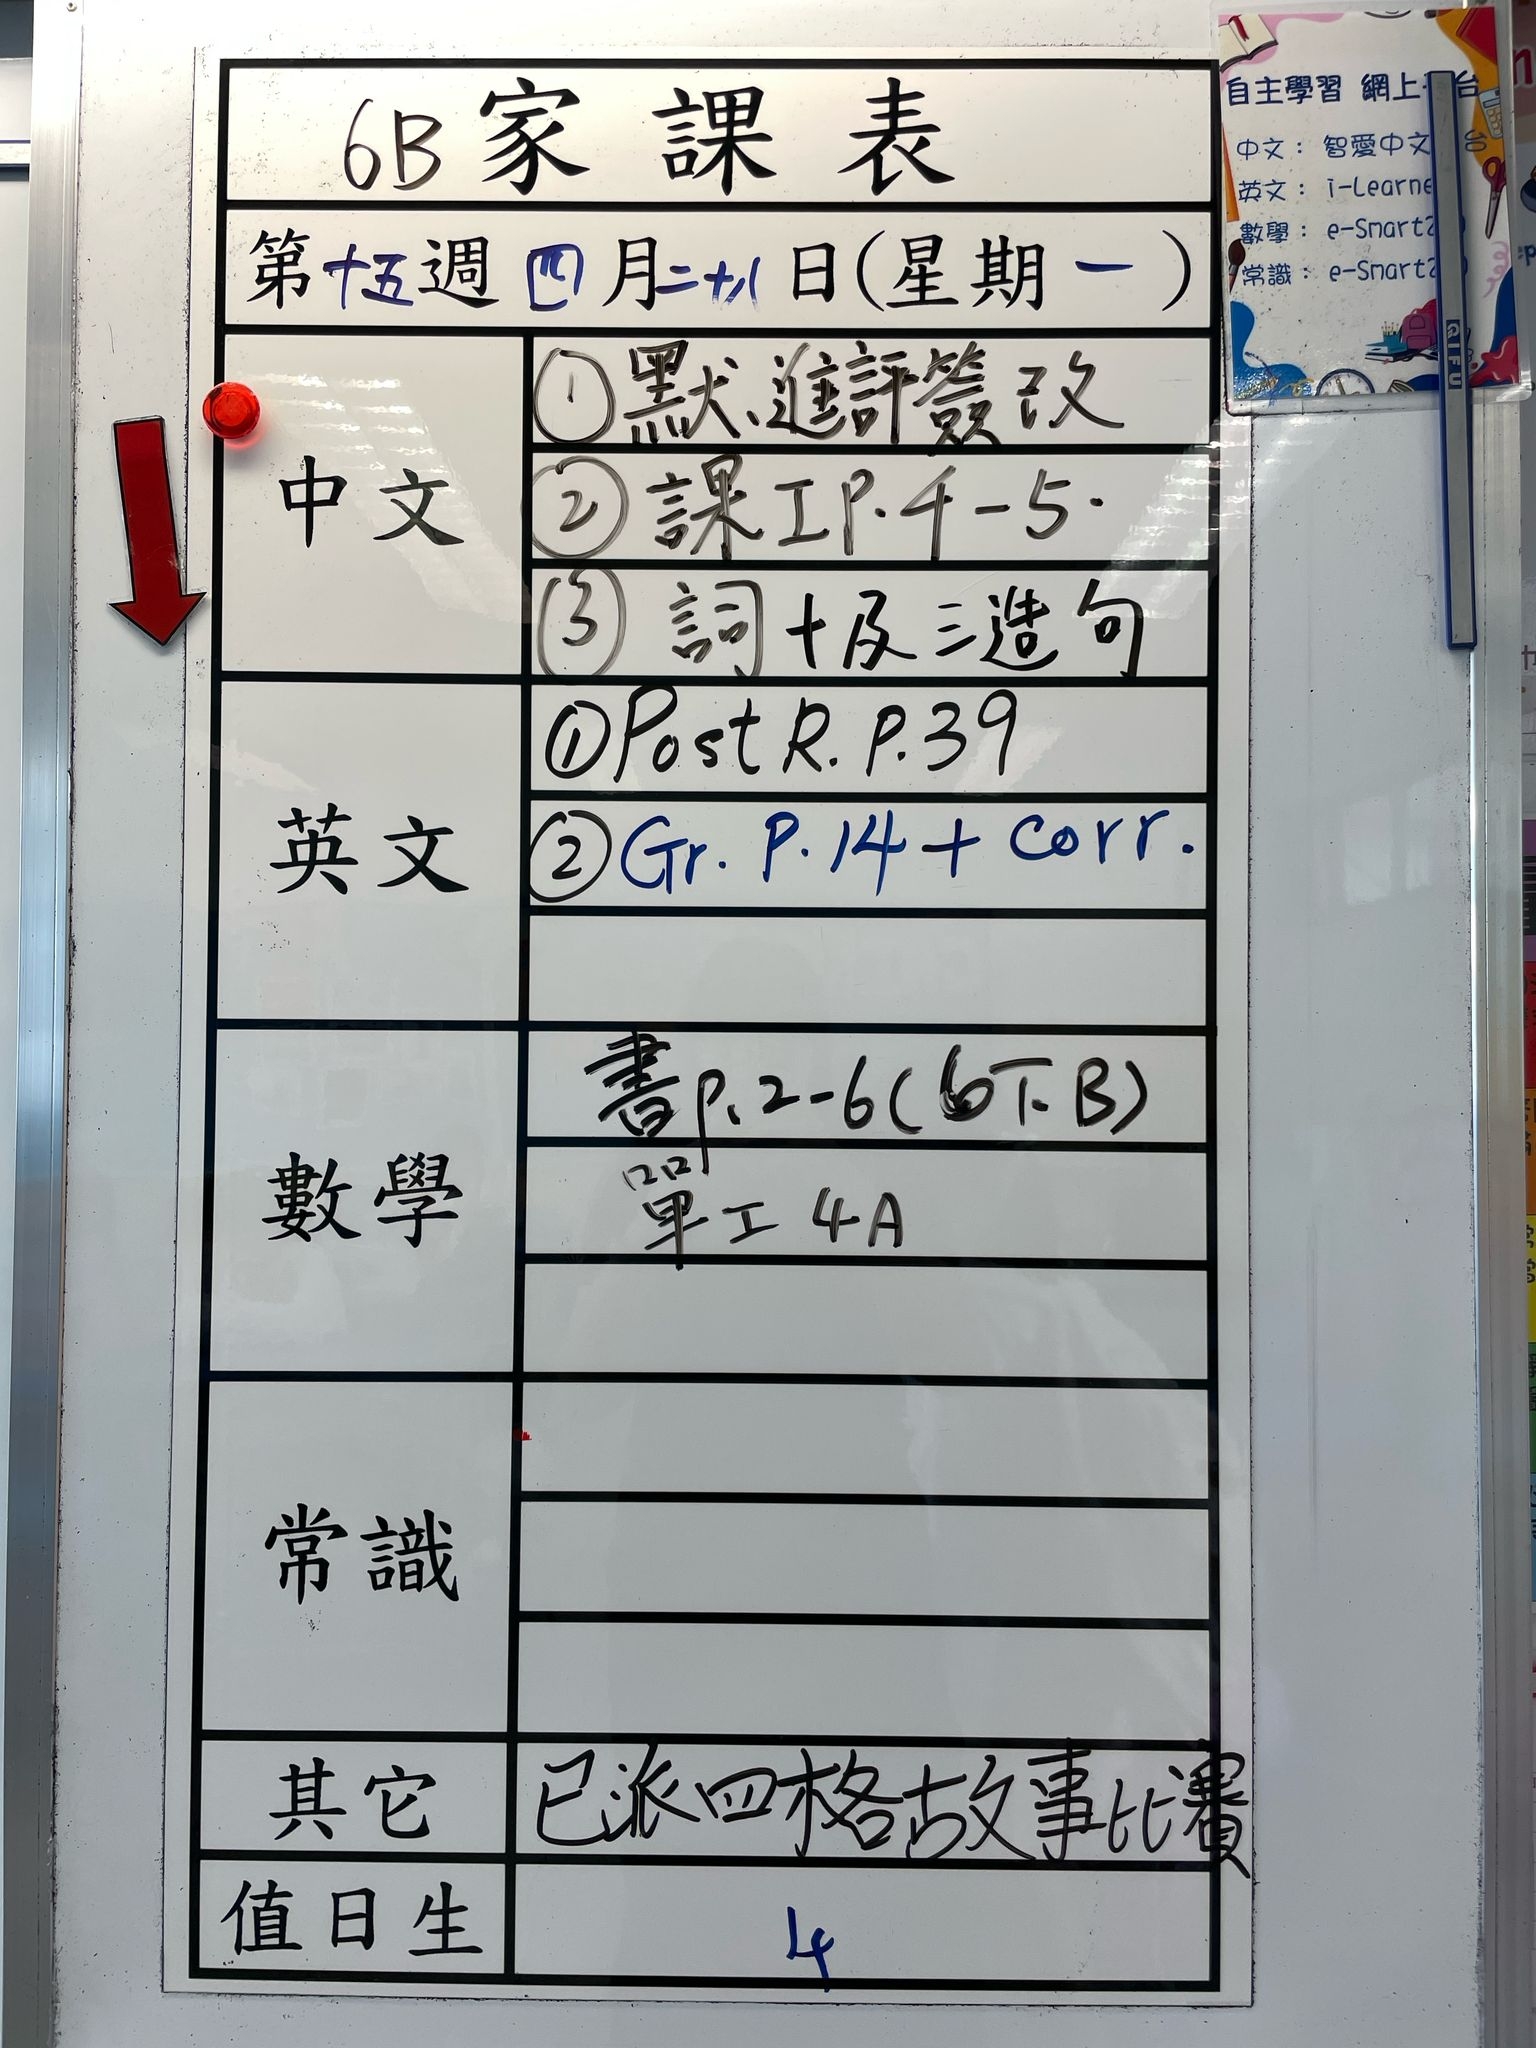 6B家課表
第十五週 四月二十八日(星期一)
中文
①默、進評簽改
②課工P.4-5.
③詞十及三造句
英文
①Post R. P.39
②Gr. P.14 + Corr.
數學
書p.2-6(6下B)
單工4A
常識
其它
已派四格故事比賽
值日生
4
自主學習 網上 台
中文： 智愛中文 台
英文： i-Learne
數學： e-Smart
常識： e-Smart
QIFU